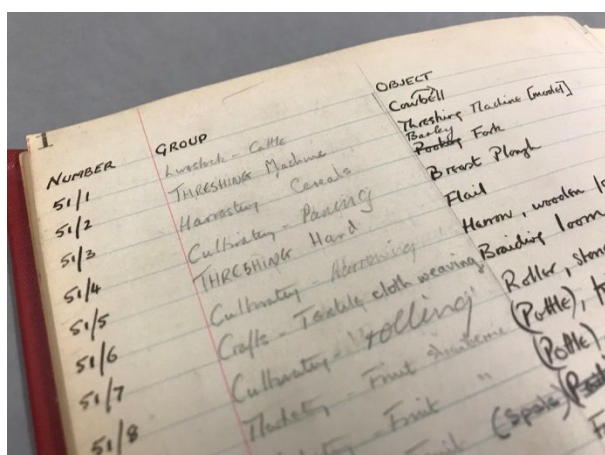 1
NUMBER GROUP OBJECT
51/1 Livestock - Cattle Cowbell
51/2 THRESHING Machine Threshing Machine [model]
51/3 Harvesting Cereals Barley Fork
51/4 Cultivating - Paring Breast Plough
51/5 THRESHING Hand Flail
51/6 Cultivating - Harrowing Harrow, wooden
51/7 Crafts - Textile cloth weaving Braiding loom
51/8 Cultivating - "rolling" Roller, stone
Marketing - Fruit (Pottle),
Fruit " (Pottle)
Fruit (Spale)